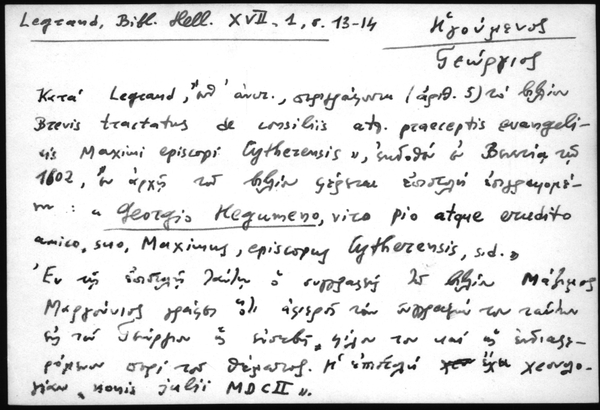 Legrand, Bibl. Hell. XVII. 1, σ. 13-14
Ἡγούμενος
Γεώργιος
Κατά Legrand, ἔνθ' ἀνωτ., περιγράφοντα (ἀριθ. 5) τό βιβλίον
Brevis tractatus de consiliis atq. praeceptis evangeli-
cis Maximi episcopi Cytherensis», ἐκδοθέν ἐν Βενετίᾳ τῷ
1602, ἐν ἀρχῇ τοῦ βιβλίου φέρεται ἐπιστολή ἐπιγραφομέ-
νη : « Georgio Hegumeno, viro pio atque erudito
amico, suo, Maximus, episcopus Cytherensis, s.d.»
Ἐν τῇ ἐπιστολῇ ταύτῃ ὁ συγγραφεύς τοῦ βιβλίου Μάξιμος
Μαργούνιος γράφει ὅτι ἀφιεροῖ τήν συγγραφήν του ταύτην
εἰς τόν Γεώργιον ὡς εὐσεβῆ, φίλον του καί ὡς ἐνδιαφε-
ρόμενον περί τοῦ θέματος. Ἡ ἐπιστολή ἔχει χρονολο-
γίαν « nonis julii MDCII ».